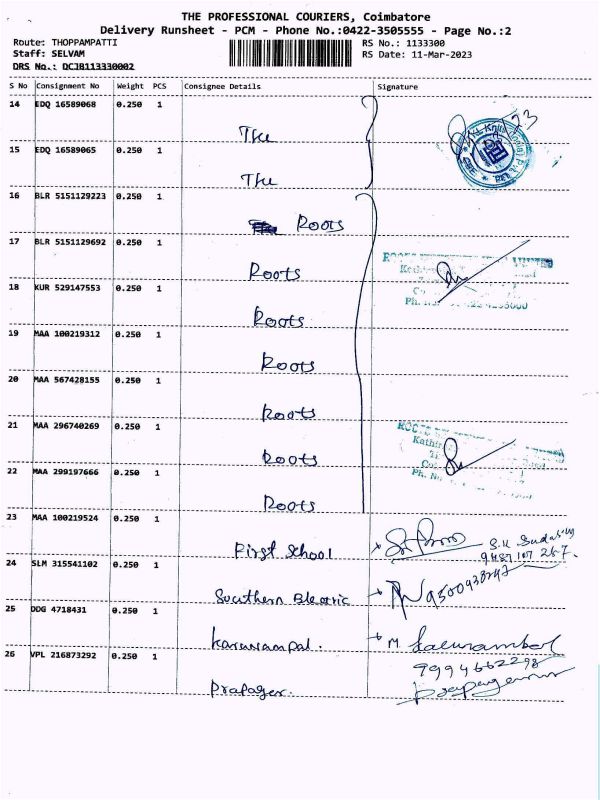 THE PROFESSIONAL COURIERS, Coimbatore
Delivery Runsheet - PCM - Phone No.:0422-3505555 - Page No.:2
Route: THOPPAMPATTI RS No.: 1133300
Staff: SELVAM RS Date: 11-Mar-2023
DRS No.: DCJB113330002
S No Consignment No Weight PCS Consignee Details Signature
14 EDQ 16589068 0.250 1 The
15 EDQ 16589065 0.250 1 The
16 BLR 5151129223 0.250 1 Roots
17 BLR 5151129692 0.250 1 Roots
18 KUR 529147553 0.250 1 Roots
19 MAA 100219312 0.250 1 Roots
20 MAA 567428155 0.250 1 Roots
21 MAA 296740269 0.250 1 Roots
22 MAA 299197666 0.250 1 Roots
23 MAA 100219524 0.250 1 First School
24 SLM 315541102 0.250 1 Southern Electric
25 DDG 4718431 0.250 1 Karurampal.
26 VPL 216873292 0.250 1 Prapager.
9994662298